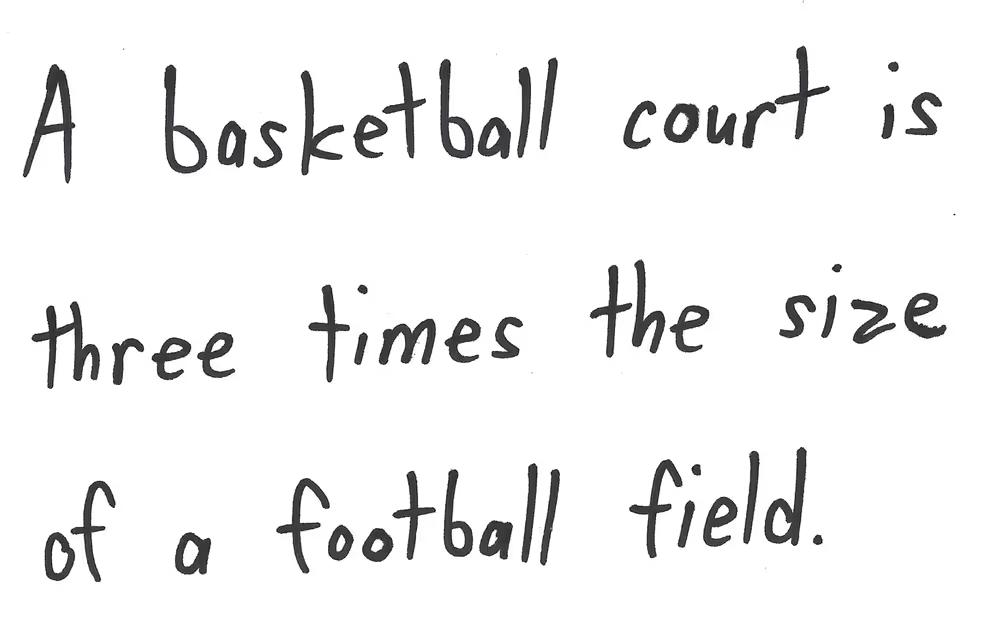 A basketball court is
three times the size
of a football field.